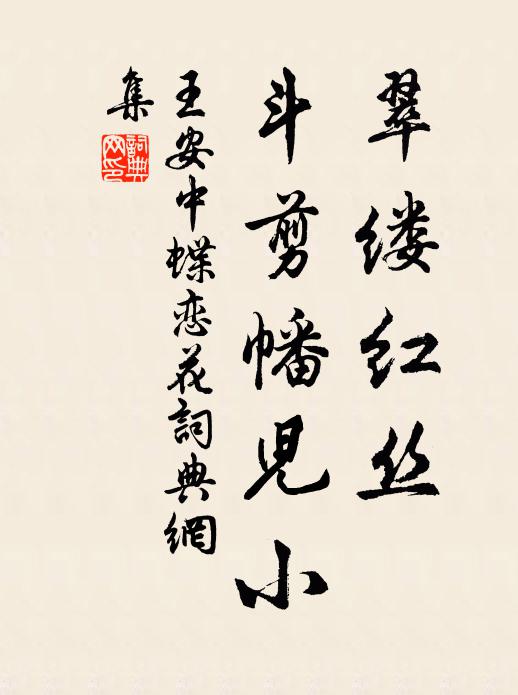 翠缕红丝
斗剪幡児小
王安中蝶恋花詞典網
集
詞典
网印